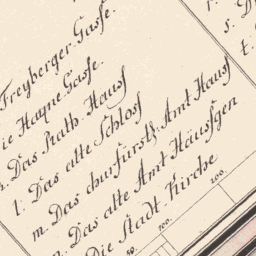 Freyberger Gasse.
ie Hayne Gasse.
Das Rath Hauß
l. Das alte Schloß
m. Das churfürstl. Amt Hauß
Das alte Amt Häußgen
Die Stadt Kirche
r.
s. D
t.
50. 100. 200.